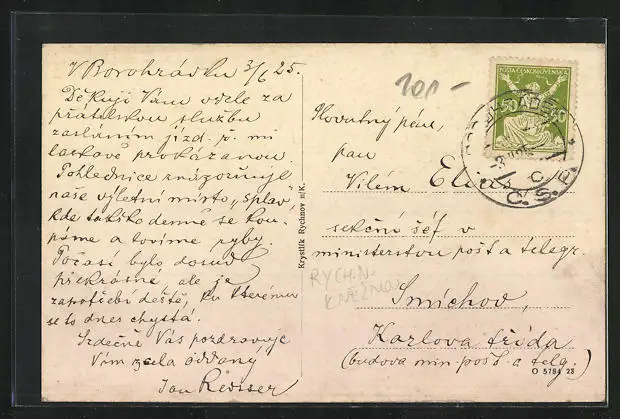 V Borohrádku 3/6 25.
Děkuji Vám vřele za
přátelskou službu
zasláním jízd. ř. mi
laskavě prokázanou.
Pohlednice znázorňuje
naše výletní místo „Splav",
kde takřko denně se kou-
páme a lovíme ryby.
Počasí bylo dosud
překrásné, ale je
zapotřebí deště, ku kterému
se to dnes chystá.
Srdečně Vás pozdravuje
Vám zcela oddaný
Jan
Krystlík Rychnov n/K.
101 -
POŠTA ČESKOSLOVENSKÁ
50 50
Č.S.P.
Slovutný pán,
pan
Vilém
sekční šéf v
ministerstvu pošt a telegr.
RYCH. N.
KNĚŽNOU
Smíchov,
Karlova třída
(budova min. pošt a telg.)
O 5784 23